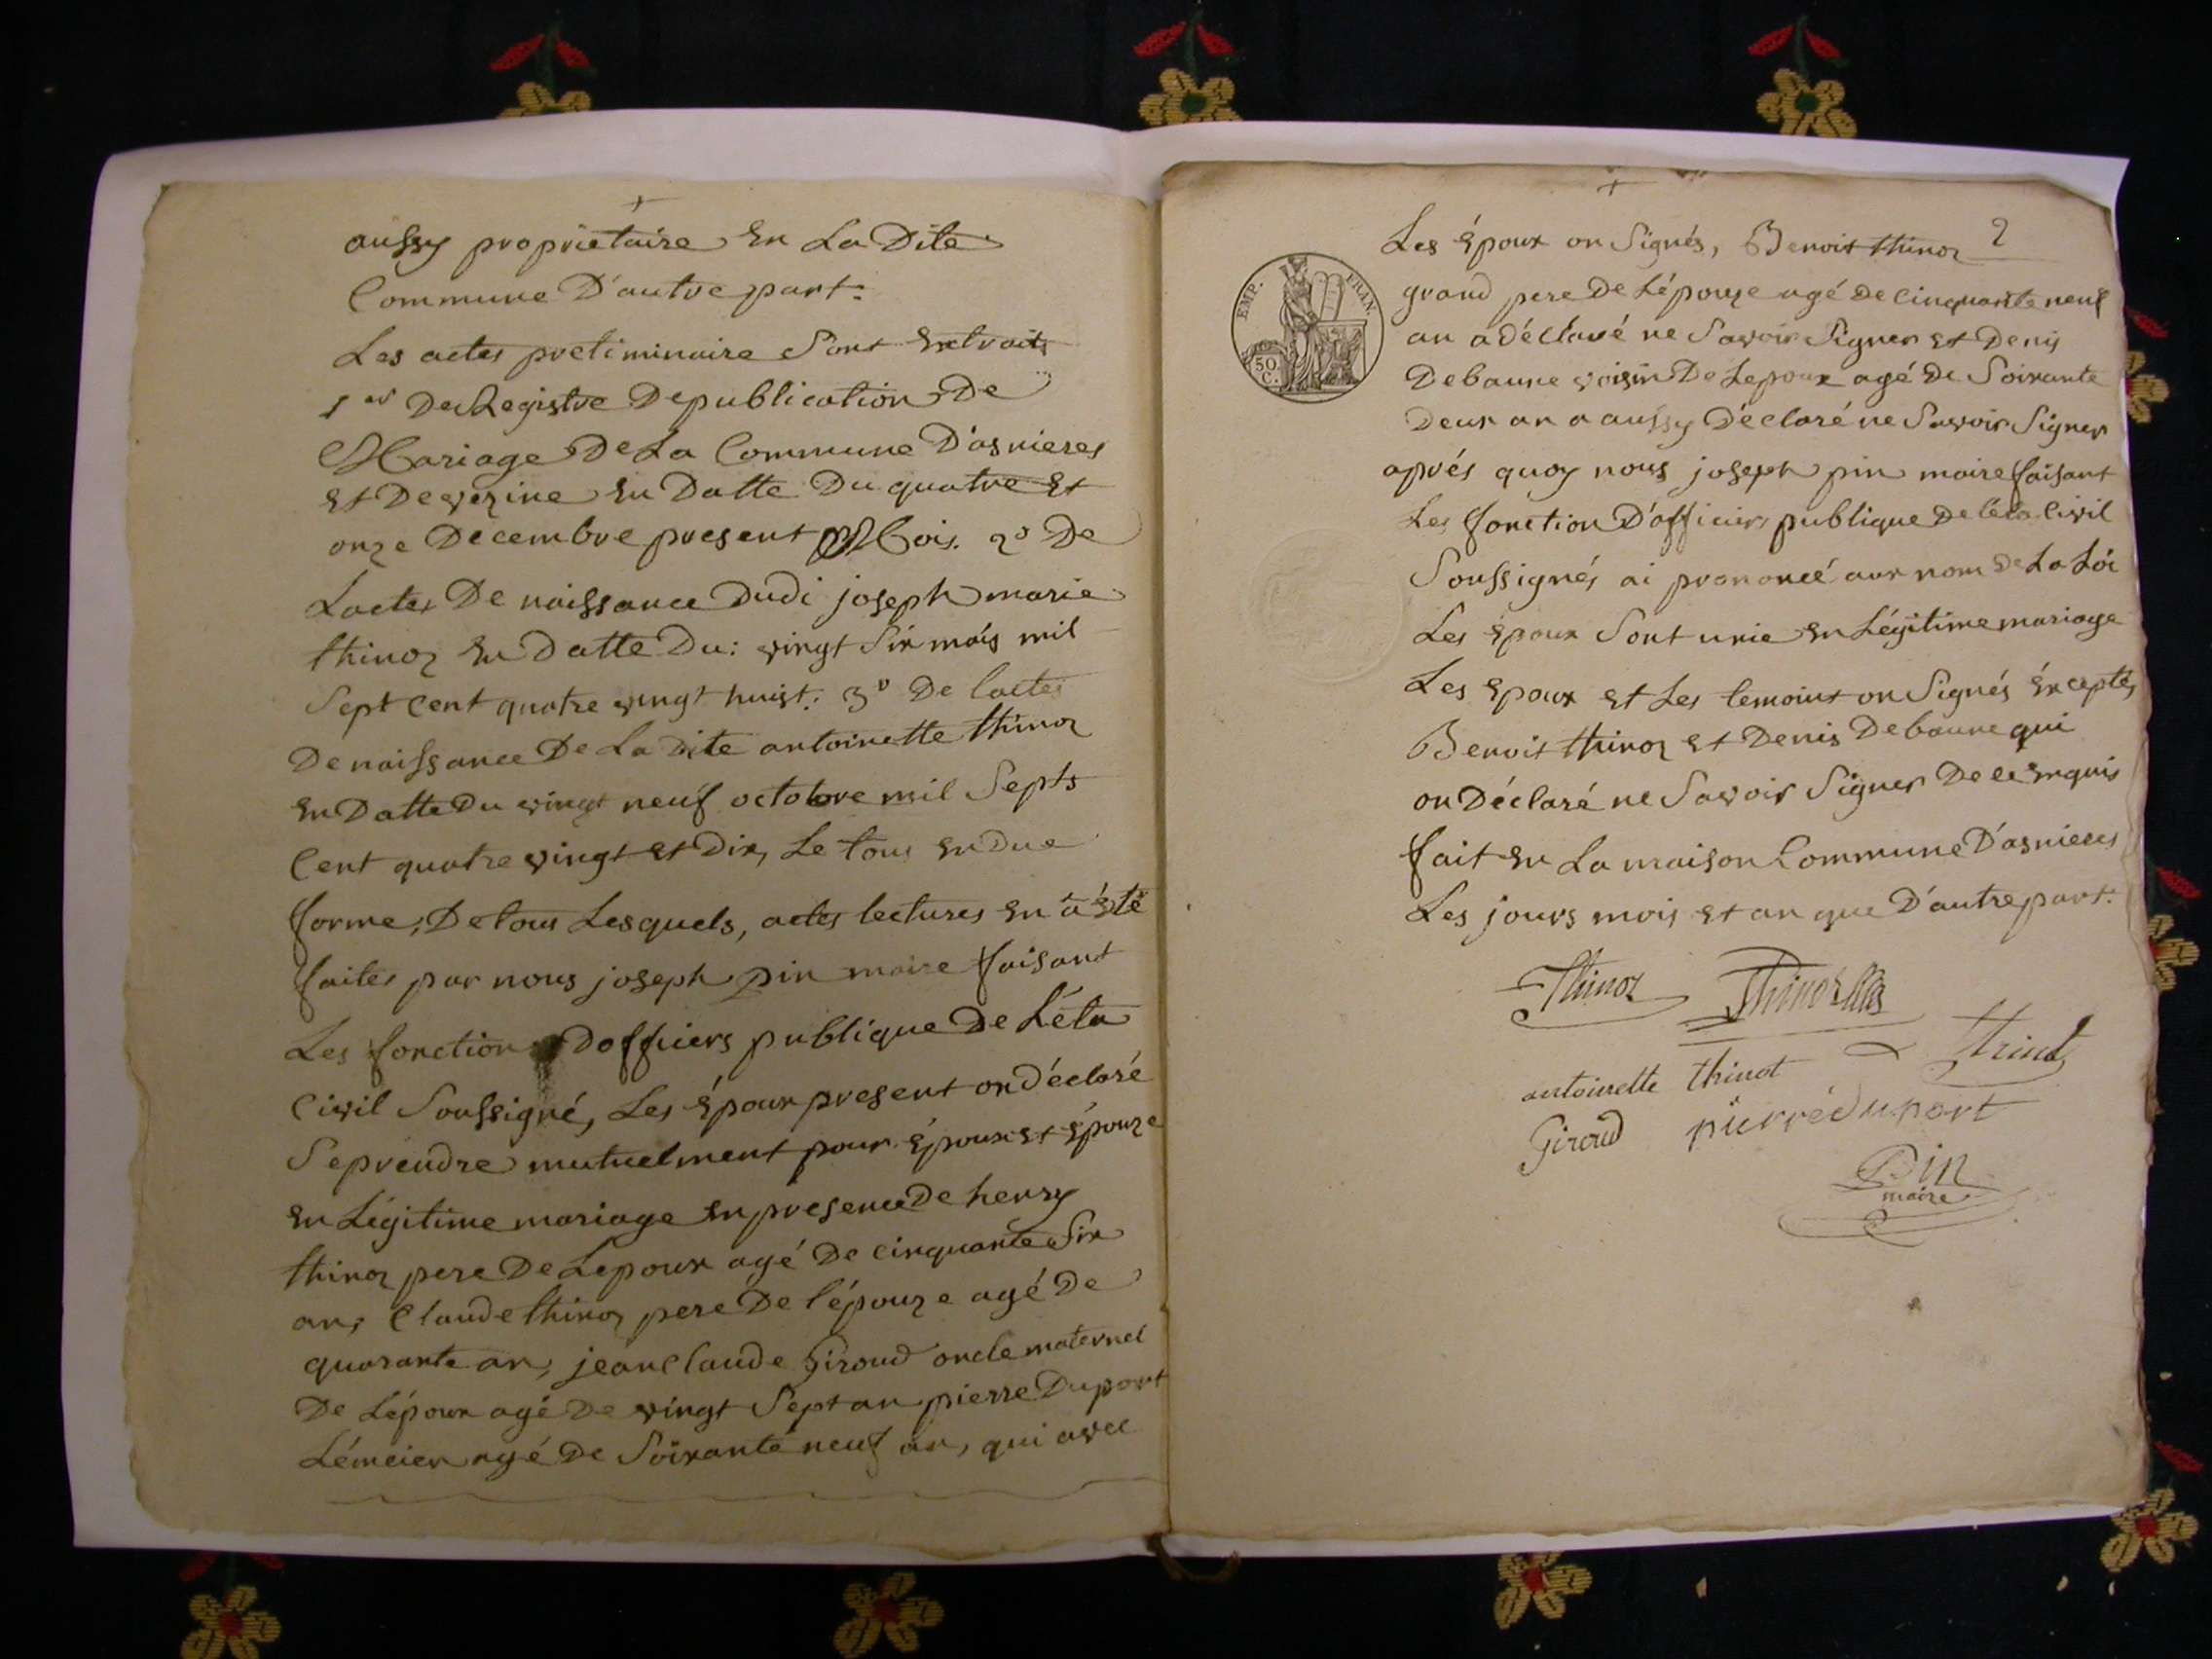 aussy proprietaire En La Dite
Commune D'autre part.
Les actes preliminaire Sont Extraits
1er De Registre De publication De
Mariage De La Commune D'asnieres
Et De vezine En Datte Du quatre Et
onze Decembre present Mois. 2o De
Lactes De naissance Dudi joseph marie
thinoz En Datte Du: vingt Six mais mil
Sept Cent quatre vingt huist: 3o De lactes
De naissance De La Dite antoinette thinoz
En Datte Du vingt neuf octobre mil Septs
Cent quatre vingt et Dix, Le tous En Due
forme, De tous Lesquels, actes lectures En a Été
faites par nous joseph pin maire faisant
Les fonction Dofficiers publique De L'éta
Civil Soussigné, Les Époux present on Déclaré
Se prendre mutuelment pour Époux Et Épouze
En Légitime mariage En presence De henry
thinoz pere De Lepoux agé De cinquante Six
an, Claude thinoz pere De l'épouze agé De
quarante an, jean Claude Giroud oncle maternel
De L'époux agé De vingt Sept an pierre Duport
agé De Soixante neuf an, qui avec
2
Les Époux on Signés, Benoit thinoz
grand pere De L'épouze agé De cinquante neuf
an a déclaré ne Savoir Signer Et Denis
Debaune voisin De Lepoux agé De Soixante
Deux an a aussy Déclaré ne Savoir Signer
aprés quoy nous joseph pin maire faisant
Les fonction D'officiers publique De l'éta Civil
Soussignés ai prononcé aux nom De La Loi
Les Époux Sont unie En Légitime mariage
Les Epoux Et Les temoins on Signés Éxceptés
Benoit thinoz Et Denis Debaune qui
on Déclaré ne Savoir Signer De ce Enquis
fait En La maison Commune D'asnieres
Les jours mois Et an que D'autre part.
EMP. FRAN.
50 C.
Thinoz Thinoz
antoinette thinot
Giroud pierre duport
Pin
maire